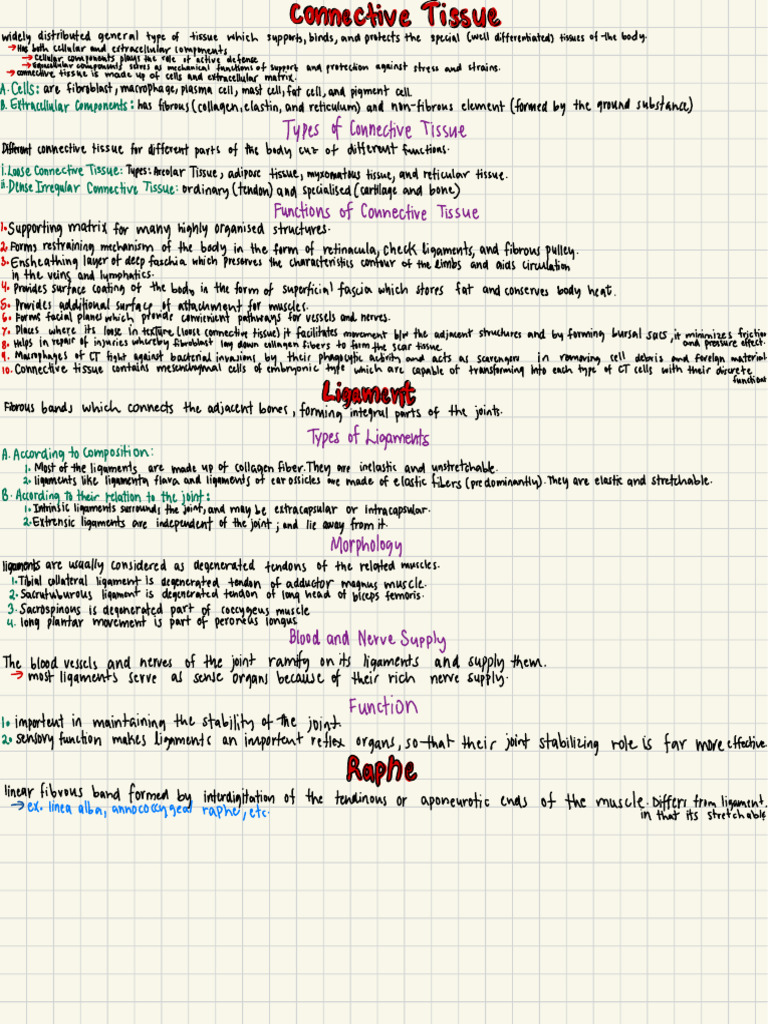 Connective Tissue
widely distributed general type of tissue which supports, binds, and protects the special (well differentiated) tissues of the body.
→ Has both cellular and extracellular components
→ cellular components plays the role of active defense
→ components serves as mechanical functions of support and protection against stress and strains.
→ connective tissue is made up of cells and extracellular matrix.
A. Cells: are fibroblast, macrophage, plasma cell, mast cell, fat cell, and pigment cell.
B. Extracellular Components: has fibrous (collagen, elastin, and reticulum) and non-fibrous element (formed by the ground substance)
Types of Connective Tissue
Different connective tissue for different parts of the body cuz of different functions.
i. Loose Connective Tissue: Types: Areolar Tissue, adipose tissue, myxomatous tissue, and reticular tissue.
ii. Dense Irregular Connective Tissue: ordinary (tendon) and specialised (cartilage and bone)
Functions of Connective Tissue
1. Supporting matrix for many highly organised structures.
2. Forms restraining mechanism of the body in the form of retinacula, check ligaments, and fibrous pulley.
3. Ensheathing layer of deep faschia which preserves the characteristics contour of the limbs and aids circulation
in the veins and lymphatics.
4. Provides surface coating of the body in the form of superficial fascia which stores fat and conserves body heat.
5. Provides additional surface of attachment for muscles.
6. Forms facial planes which provide convenient pathways for vessels and nerves.
7. Places where its loose in texture (loose connective tissue) it facilitates movement b/w the adjacent structures and by forming bursal sacs, it minimizes friction
and pressure effect.
8. Helps in repair of injuries whereby fibroblast lay down collagen fibers to form the scar tissue.
9. Macrophages of CT fight against bacterial invasions by their phagocytic activity and acts as scavengers in removing cell debris and foreign material
10. Connective tissue contains mesenchymal cells of embryonic type which are capable of transforming into each type of CT cells with their discrete
functions
Ligament
Fibrous bands which connects the adjacent bones, forming integral parts of the joints.
Types of Ligaments
A. According to Composition:
1. Most of the ligaments are made up of collagen fiber. They are inelastic and unstretchable.
2. ligaments like ligamenta flava and ligaments of ear ossicles are made of elastic fibers (predominantly). They are elastic and stretchable.
B. According to their relation to the joint:
1. Intrinsic ligaments surrounds the joint, and may be extracapsular or intracapsular.
2. Extrensic ligaments are independent of the joint; and lie away from it.
Morphology
ligaments are usually considered as degenerated tendons of the related muscles.
1. Tibial collateral ligament is degenerated tendon of adductor magnus muscle.
2. Sacrutuburous ligament is degenerated tendon of long head of biceps femoris.
3. Sacrospinous is degenerated part of coccygeus muscle
4. long plantar movement is part of peroneus longus
Blood and Nerve Supply
The blood vessels and nerves of the joint ramify on its ligaments and supply them.
→ most ligaments serve as sense organs because of their rich nerve supply.
Function
1. important in maintaining the stability of the joint.
2. sensory function makes ligaments an important reflex organs, so that their joint stabilizing role is far more effective.
Raphe
linear fibrous band formed by interdigitation of the tendinous or aponeurotic ends of the muscle. Differs from ligament.
in that its stretchable
→ ex. linea alba, annococcygeal raphe, etc.